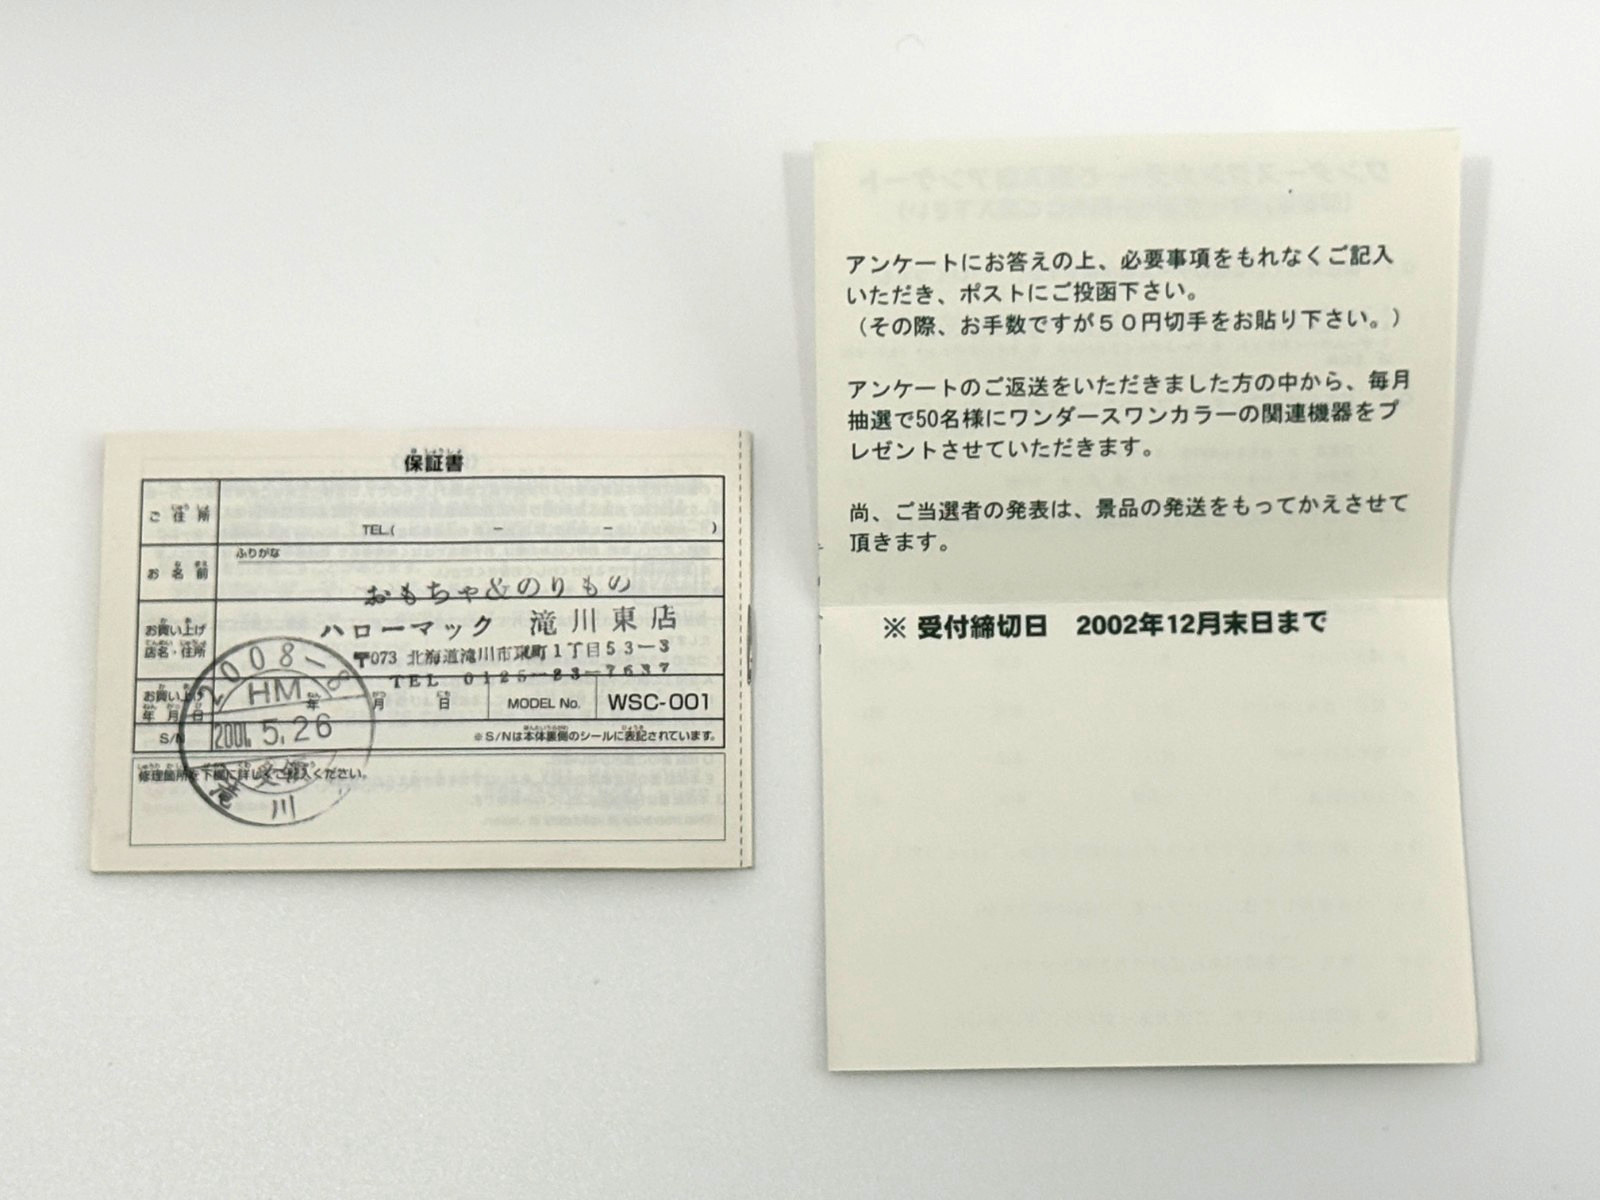 保証書
ご住所
TEL.( － － )
ふりがな
お名前
おもちゃ&のりもの
ハローマック 滝川東店
〒073 北海道滝川市東町1丁目53-3
TEL 0125-23-7637
お買い上げ
店名・住所
お買い上げ
年月日
年 月 日
MODEL No. WSC-001
S/N
※S/Nは本体裏側のシールに表記されています。
修理箇所を下欄に詳しくご記入ください。
2008-8
HM
2001. 5. 26
滝川
アンケートにお答えの上、必要事項をもれなくご記入
いただき、ポストにご投函下さい。
(その際、お手数ですが50円切手をお貼り下さい。)
アンケートのご返送をいただきました方の中から、毎月
抽選で50名様にワンダースワンカラーの関連機器をプ
レゼントさせていただきます。
尚、ご当選者の発表は、景品の発送をもってかえさせて
頂きます。
※ 受付締切日 2002年12月末日まで